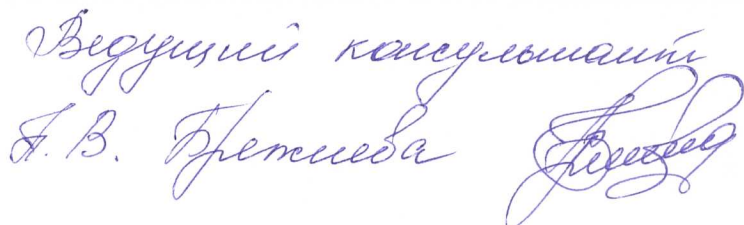 Ведущий консультант
Т.В. Брежнева